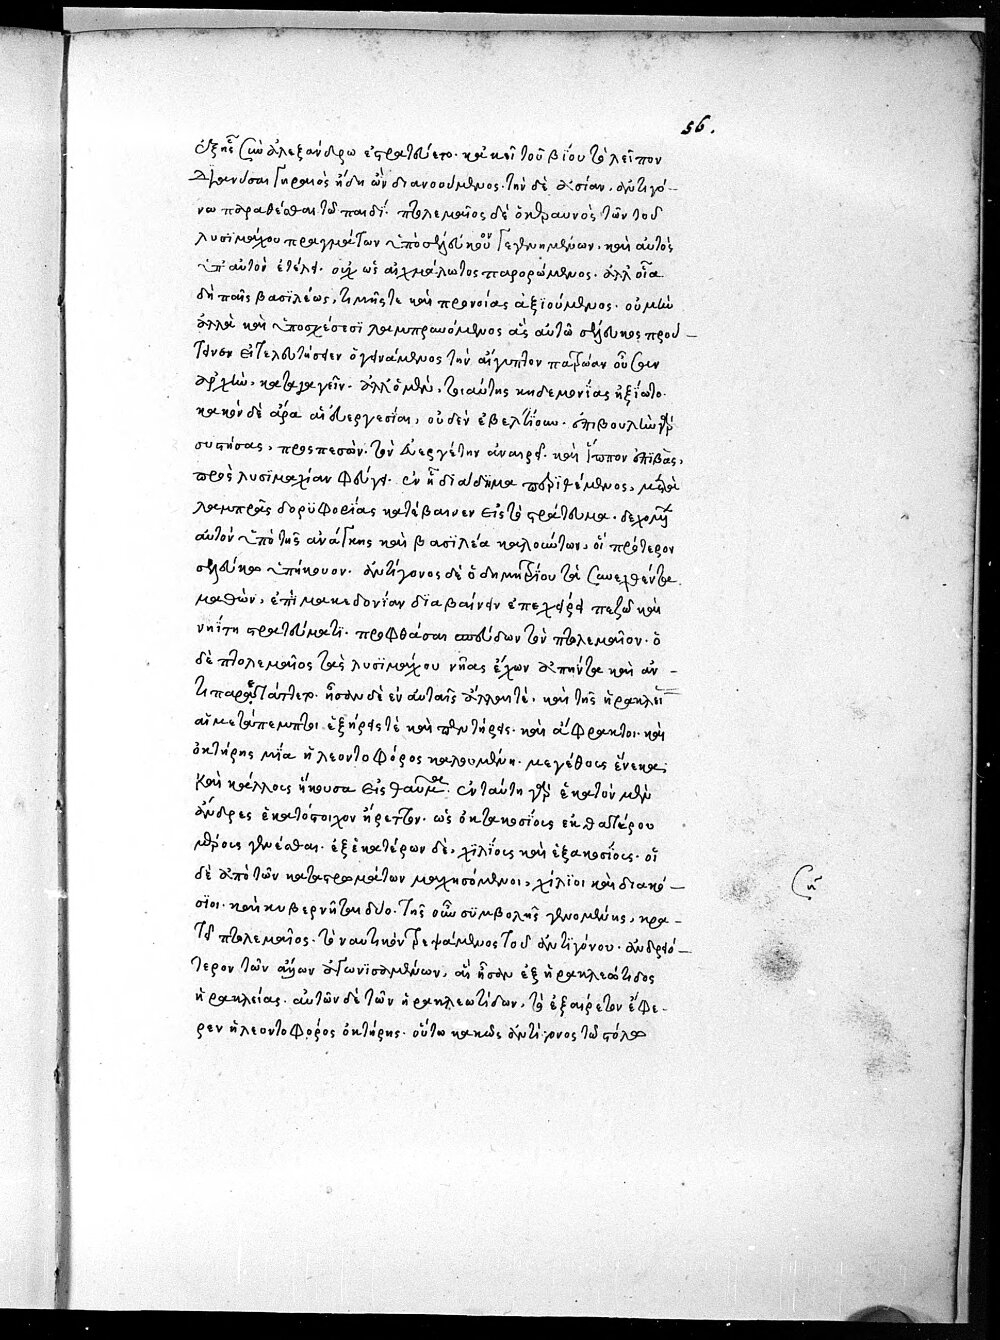 ἐξ ἧς σὺν ἀλεξάνδρω ἐστρατεύετο. κἀκεῖ τοῦ βίου τὸ λεῖπον
διανύσαι γηραιὸς ἤδη ὢν διανοούμενος. τὴν δὲ ἀσίαν, ἀντιγό-
νω παραθέσθαι τῶ παιδί. πτολεμαῖος δὲ ὁ κεραυνὸς τῶν τοῦ
λυσιμάχου πραγμάτων ὑπὸ σέλευκον γεγενημένων, καὶ αὐτὸς
ὑπ' αὐτὸν ἐτέλει. οὐχ ὡς αἰχμάλωτος παρορώμενος. ἀλλ' οἷα
δὴ παῖς βασιλέως, τιμῆς τε καὶ προνοίας ἀξιούμενος. οὐ μὴν
ἀλλὰ καὶ ὑποσχέσεσι λαμπρυνόμενος ἃς αὐτῶ σέλευκος πρού-
τεινεν εἰ τελευτήσειεν ὁ γεινάμενος τὴν αἴγυπτον πατρώαν οὖσαν
ἀρχὴν, καταγαγεῖν. ἀλλ' ὁ μὲν, τοιαύτης κηδεμονίας ἠξίωτο.
κακὸν δὲ ἄρα αἱ εὐεργεσίαι, οὐδὲν ἐβελτίουν. ἐπιβουλὴν γὰρ
συστήσας, προσπεσὼν τὸν εὐεργέτην ἀναιρεῖ. καὶ ἵππον ἐπιβὰς,
πρὸς λυσιμαχίαν φεύγει. ἐν ἧ διάδημα περιθέμενος, μετὰ
λαμπρᾶς δορυφορίας κατέβαινεν εἰς τὸ στράτευμα. δεχομένων
αὐτὸν ὑπὸ τῆς ἀνάγκης καὶ βασιλέα καλούντων, οἳ πρότερον
σελεύκω ὑπήκουον. ἀντίγονος δὲ ὁ δημητρίου τὰ συνελθέντα
μαθὼν, ἐπὶ μακεδονίαν διαβαίνειν ἐπεχείρει πεζῶ καὶ
νηίτη στρατεύματι. προφθάσαι σπεύδων τὸν πτολεμαῖον. ὁ
δὲ πτολεμαῖος τὰς λυσιμάχου νῆας ἔχων ἀπήντα καὶ ἀν-
τιπαρετάττετο. ἦσαν δὲ ἐν αὐταῖς ἄλλαι τὲ, καὶ τῆς ἡρακλεί
αἱ μετάπεμπτοι. ἑξήρεις τὲ καὶ πεντήρεις. καὶ ἄφρακτοι. καὶ
ὀκτήρης μία ἡ λεοντοφόρος καλουμένη. μεγέθους ἕνεκα.
καὶ κάλλους ἥκουσα εἰς θαῦμα. ἐν ταύτη γὰρ ἑκατὸν μὲν
ἄνδρες ἑκατόστοιχον ἤρεττον. ὡς ὀκτακοσίους ἐκ θατέρου
μέρους γενέσθαι. ἐξ ἑκατέρων δὲ, χιλίους καὶ ἑξακοσίους. οἱ
δὲ ἀπὸ τῶν καταστρωμάτων μαχησόμενοι, χίλιοι καὶ διακό-
σιοι. καὶ κυβερνῆται δύο. τῆς οὖν συμβολῆς γενομένης, κρα-
τεῖ πτολεμαῖος. τὸ ναυτικὸν τρεψάμενος τοῦ ἀντιγόνου. ἀνδρειό-
τερον τῶν ἄλλων ἀγωνισαμένων, αἳ ἦσαν ἐξ ἡρακλεώτιδος
ἡρακλείας. αὐτῶν δὲ τῶν ἡρακλεωτίδων, τὸ ἐξαίρετον ἔφε-
ρεν ἡ λεοντοφόρος ὀκτήρης. οὕτω κακῶς ἀντίγονος τῶ στόλω
56.